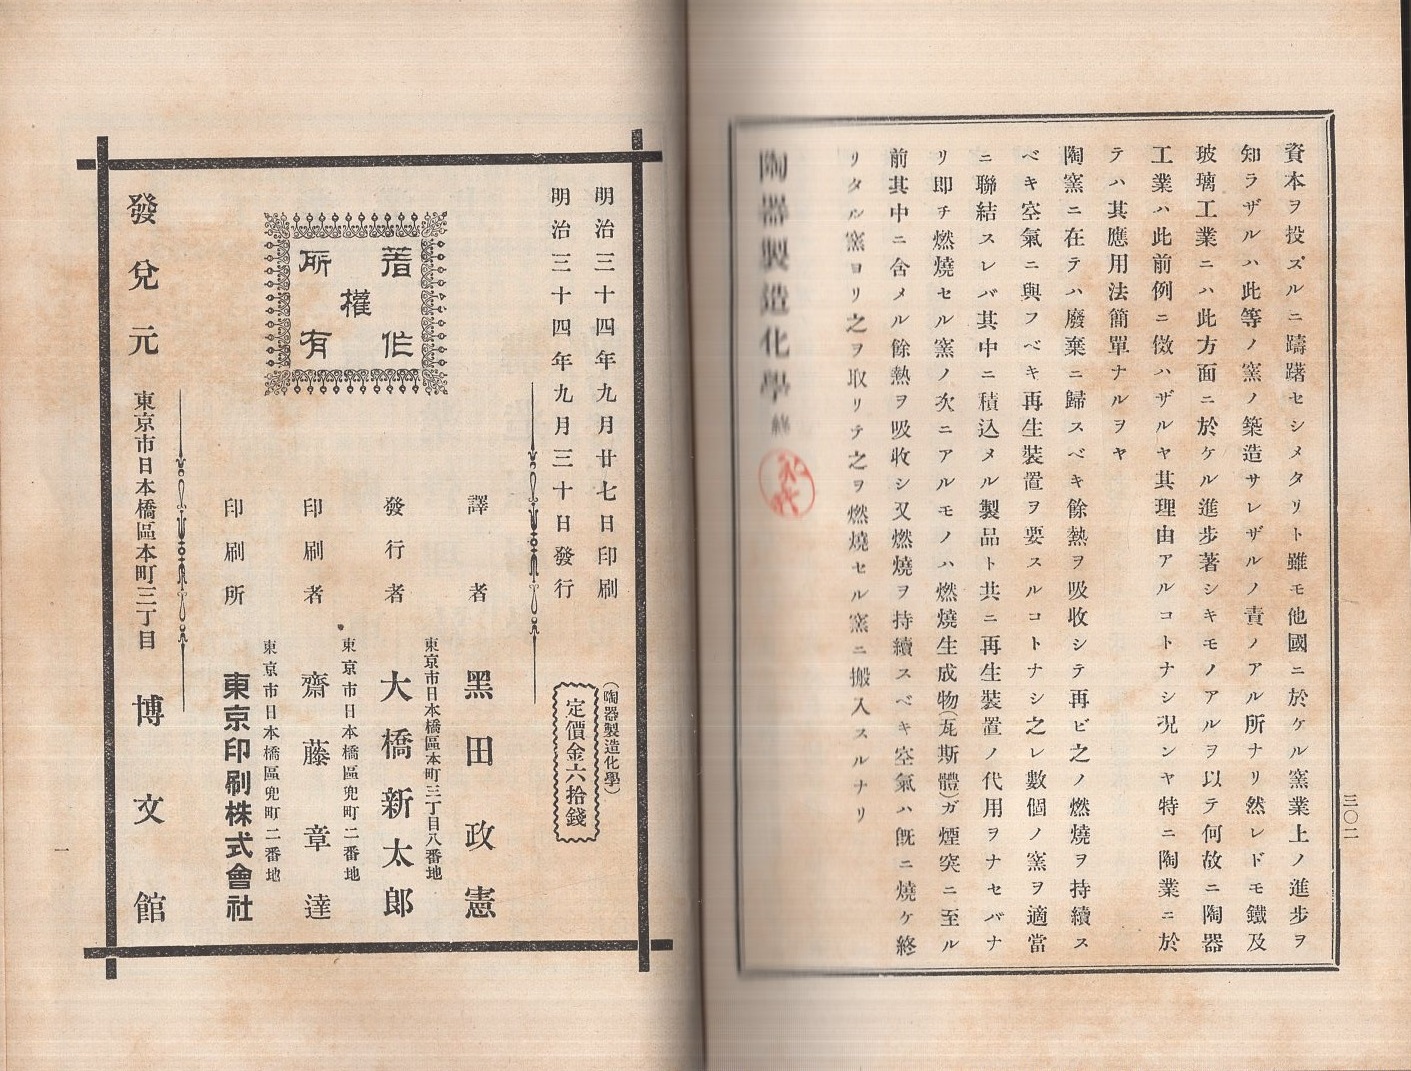 資本ヲ投ズルニ躊躇セシメタリト雖モ他國ニ於ケル窯業上ノ進步ヲ
知ラザルハ此等ノ窯ノ築造サレザルノ責ノアル所ナリ然レドモ鐵及
玻璃工業ニハ此方面ニ於ケル進步著シキモノアルヲ以テ何故ニ陶器
工業ハ此前例ニ傚ハザルヤ其理由アルコトナシ況ンヤ特ニ陶業ニ於
テハ其應用法簡單ナルヲヤ
陶窯ニ在テハ廢棄ニ歸スベキ餘熱ヲ吸收シテ再ビ之ノ燃燒ヲ持續ス
ベキ空氣ニ與フベキ再生裝置ヲ要スルコトナシ之レ數個ノ窯ヲ適當
ニ聯結スレバ其中ニ積込メル製品ト共ニ再生裝置ノ代用ヲナセバナ
リ即チ燃燒セル窯ノ次ニアルモノハ燃燒生成物(瓦斯體)ガ煙突ニ至ル
前其中ニ含メル餘熱ヲ吸收シ又燃燒ヲ持續スベキ空氣ハ旣ニ燒ケ終
リタル窯ヨリ之ヲ取リテ之ヲ燃燒セル窯ニ搬入スルナリ
陶器製造化學終
三〇二
明治三十四年九月廿七日印刷
明治三十四年九月三十日發行
(陶器製造化學)
定價金六拾錢
著作
權
所有
譯者 黑田政憲
東京市日本橋區本町三丁目八番地
發行者 大橋新太郎
東京市日本橋區兜町二番地
印刷者 齋藤章達
東京市日本橋區兜町二番地
印刷所 東京印刷株式會社
發兌元 東京市日本橋區本町三丁目 博文館
一